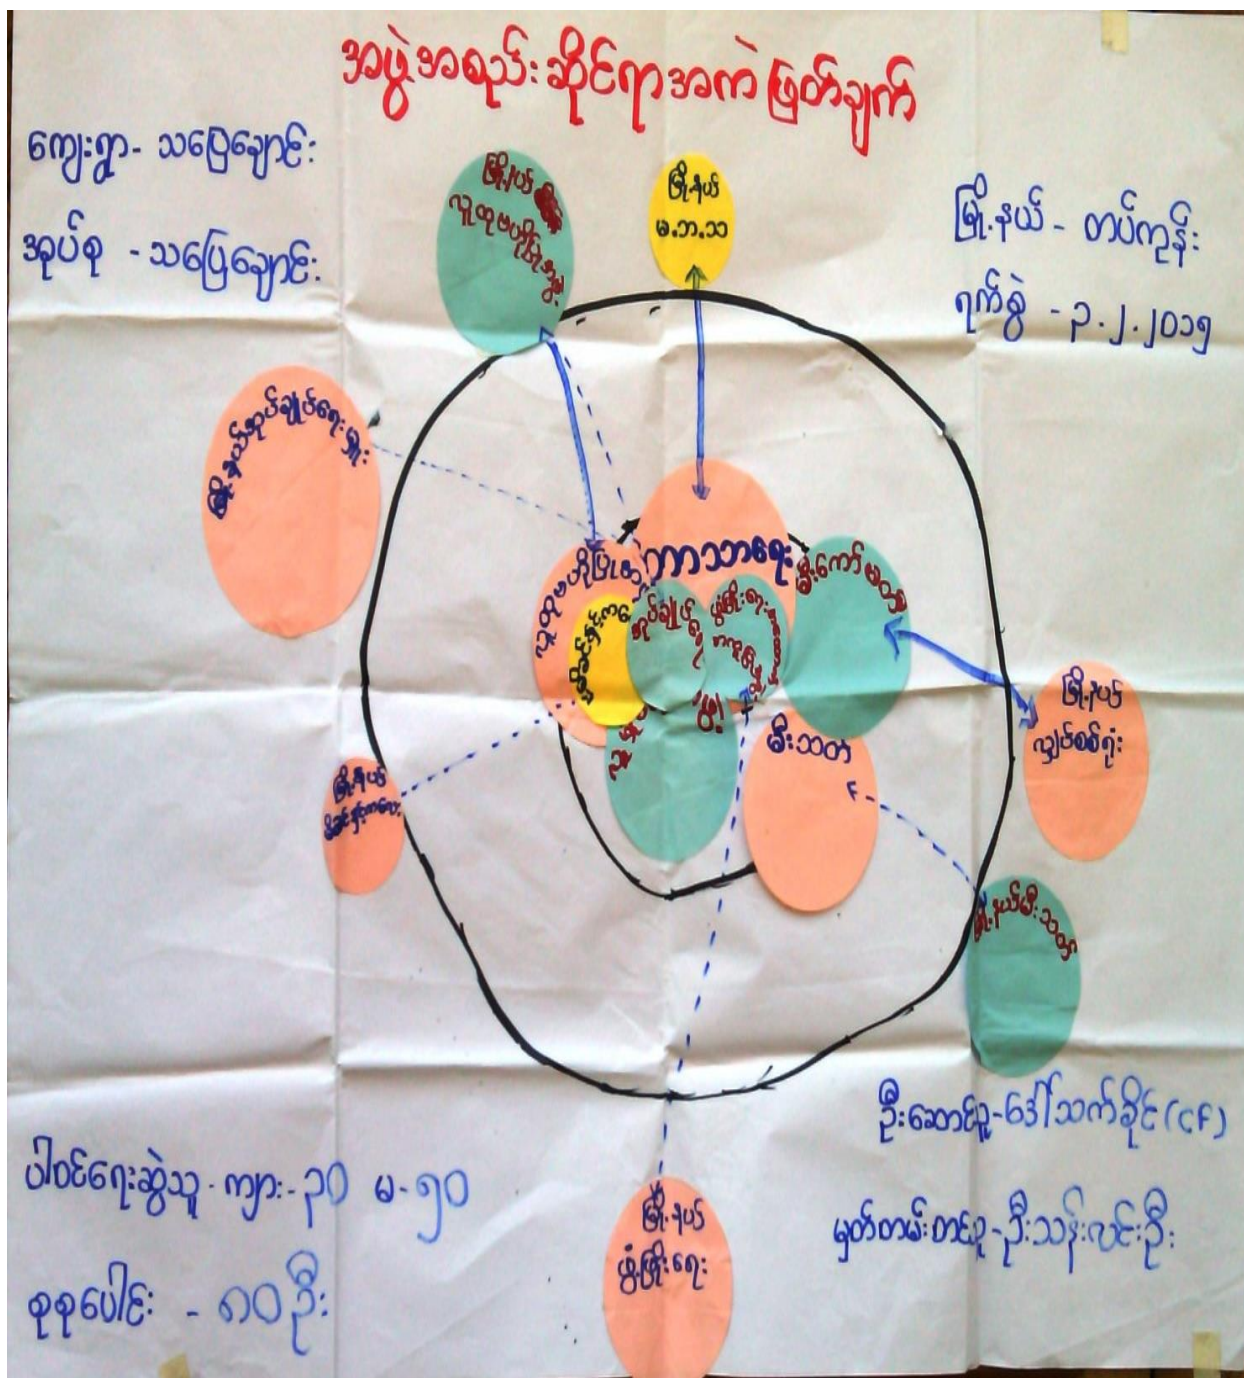 အဖွဲ့အစည်းဆိုင်ရာအကဲဖြတ်ချက်
ကျေးရွာ- သပြေချောင်း
အုပ်စု - သပြေချောင်း
မြို့နယ် - တပ်ကုန်း
ရက်စွဲ - ၃.၂.၂၀၁၅
မြို့နယ်
လူထုဗဟိုပြုအဖွဲ့
မြို့နယ်
မ.ဘ.သ
မြို့နယ်အုပ်ချုပ်ရေးမှူး
လူထုဗဟိုပြု
ဘာသာရေး
မီးကော်မတီ
မိခင်နှင့်ကလေး
အုပ်ချုပ်ရေး
ဖွံ့ဖြိုးရေး
မီးသတ်
မြို့နယ်
လျှပ်စစ်ရုံး
မြို့နယ်
မိခင်နှင့်ကလေး
မြို့နယ်မီးသတ်
မြို့နယ်
ဖွံ့ဖြိုးရေး
ဦးဆောင်သူ-ဒေါ်သက်ခိုင်(CF)
မှတ်တမ်းတင်သူ-ဦးသန်းလင်းဦး
ပါဝင်ရေးဆွဲသူ - ကျား - ၃၀ မ - ၅၀
စုစုပေါင်း - ၈၀ဦး